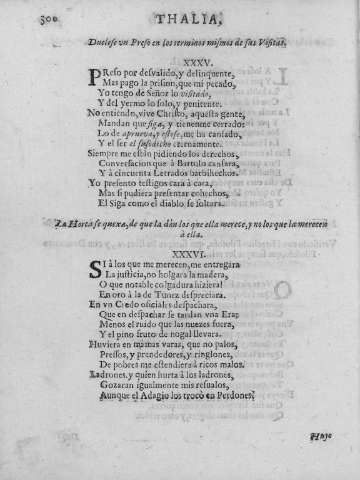 300 THALIA,
Duelese vn Preso en los terminos mismos de sus Visitas.
XXXV.
PReso por desvalido, y delinquente,
Mas pago la prision, que mi pecado,
Yo tengo de Señor lo visitado,
Y del yermo lo solo, y penitente.
No entiendo, vive Christo, aquesta gente,
Mandan que siga, y tienenme cerrado:
Lo de aprueva, y estese, me ha cansado,
Y el ser el susodicho eternamente.
Siempre me estàn pidiendo los derechos,
Conversacion que à Bartulo cansara,
Y à cincuenta Letrados barbihechos.
Yo presento testigos cara à cara,
Mas si pudiera presentar cohechos,
El Siga como el diablo, se soltara.
La Horca se quexa, de que la dàn los que ella merece, y no los que la merecen
à ella.
XXXVI.
SI à los que me merecen, me entregara
La justicia, no holgara la madera,
O que notable colgadura hiziera!
En oro à la de Tunez despreciara.
En vn Credo oficiales despachara,
Que en despachar se tardan vna Era;
Menos el ruido que las nuezes fuera,
Y el pino fruto de nogal llevara.
Huviera en mi mas varas, que no palos,
Pressos, y prendedores, y ringlones,
De pobres me estendiera à ricos malos.
Ladrones, y quien hurta à los ladrones,
Gozaran igualmente mis resualos,
Aunque el Adagio los trocò en Perdones?
Huye